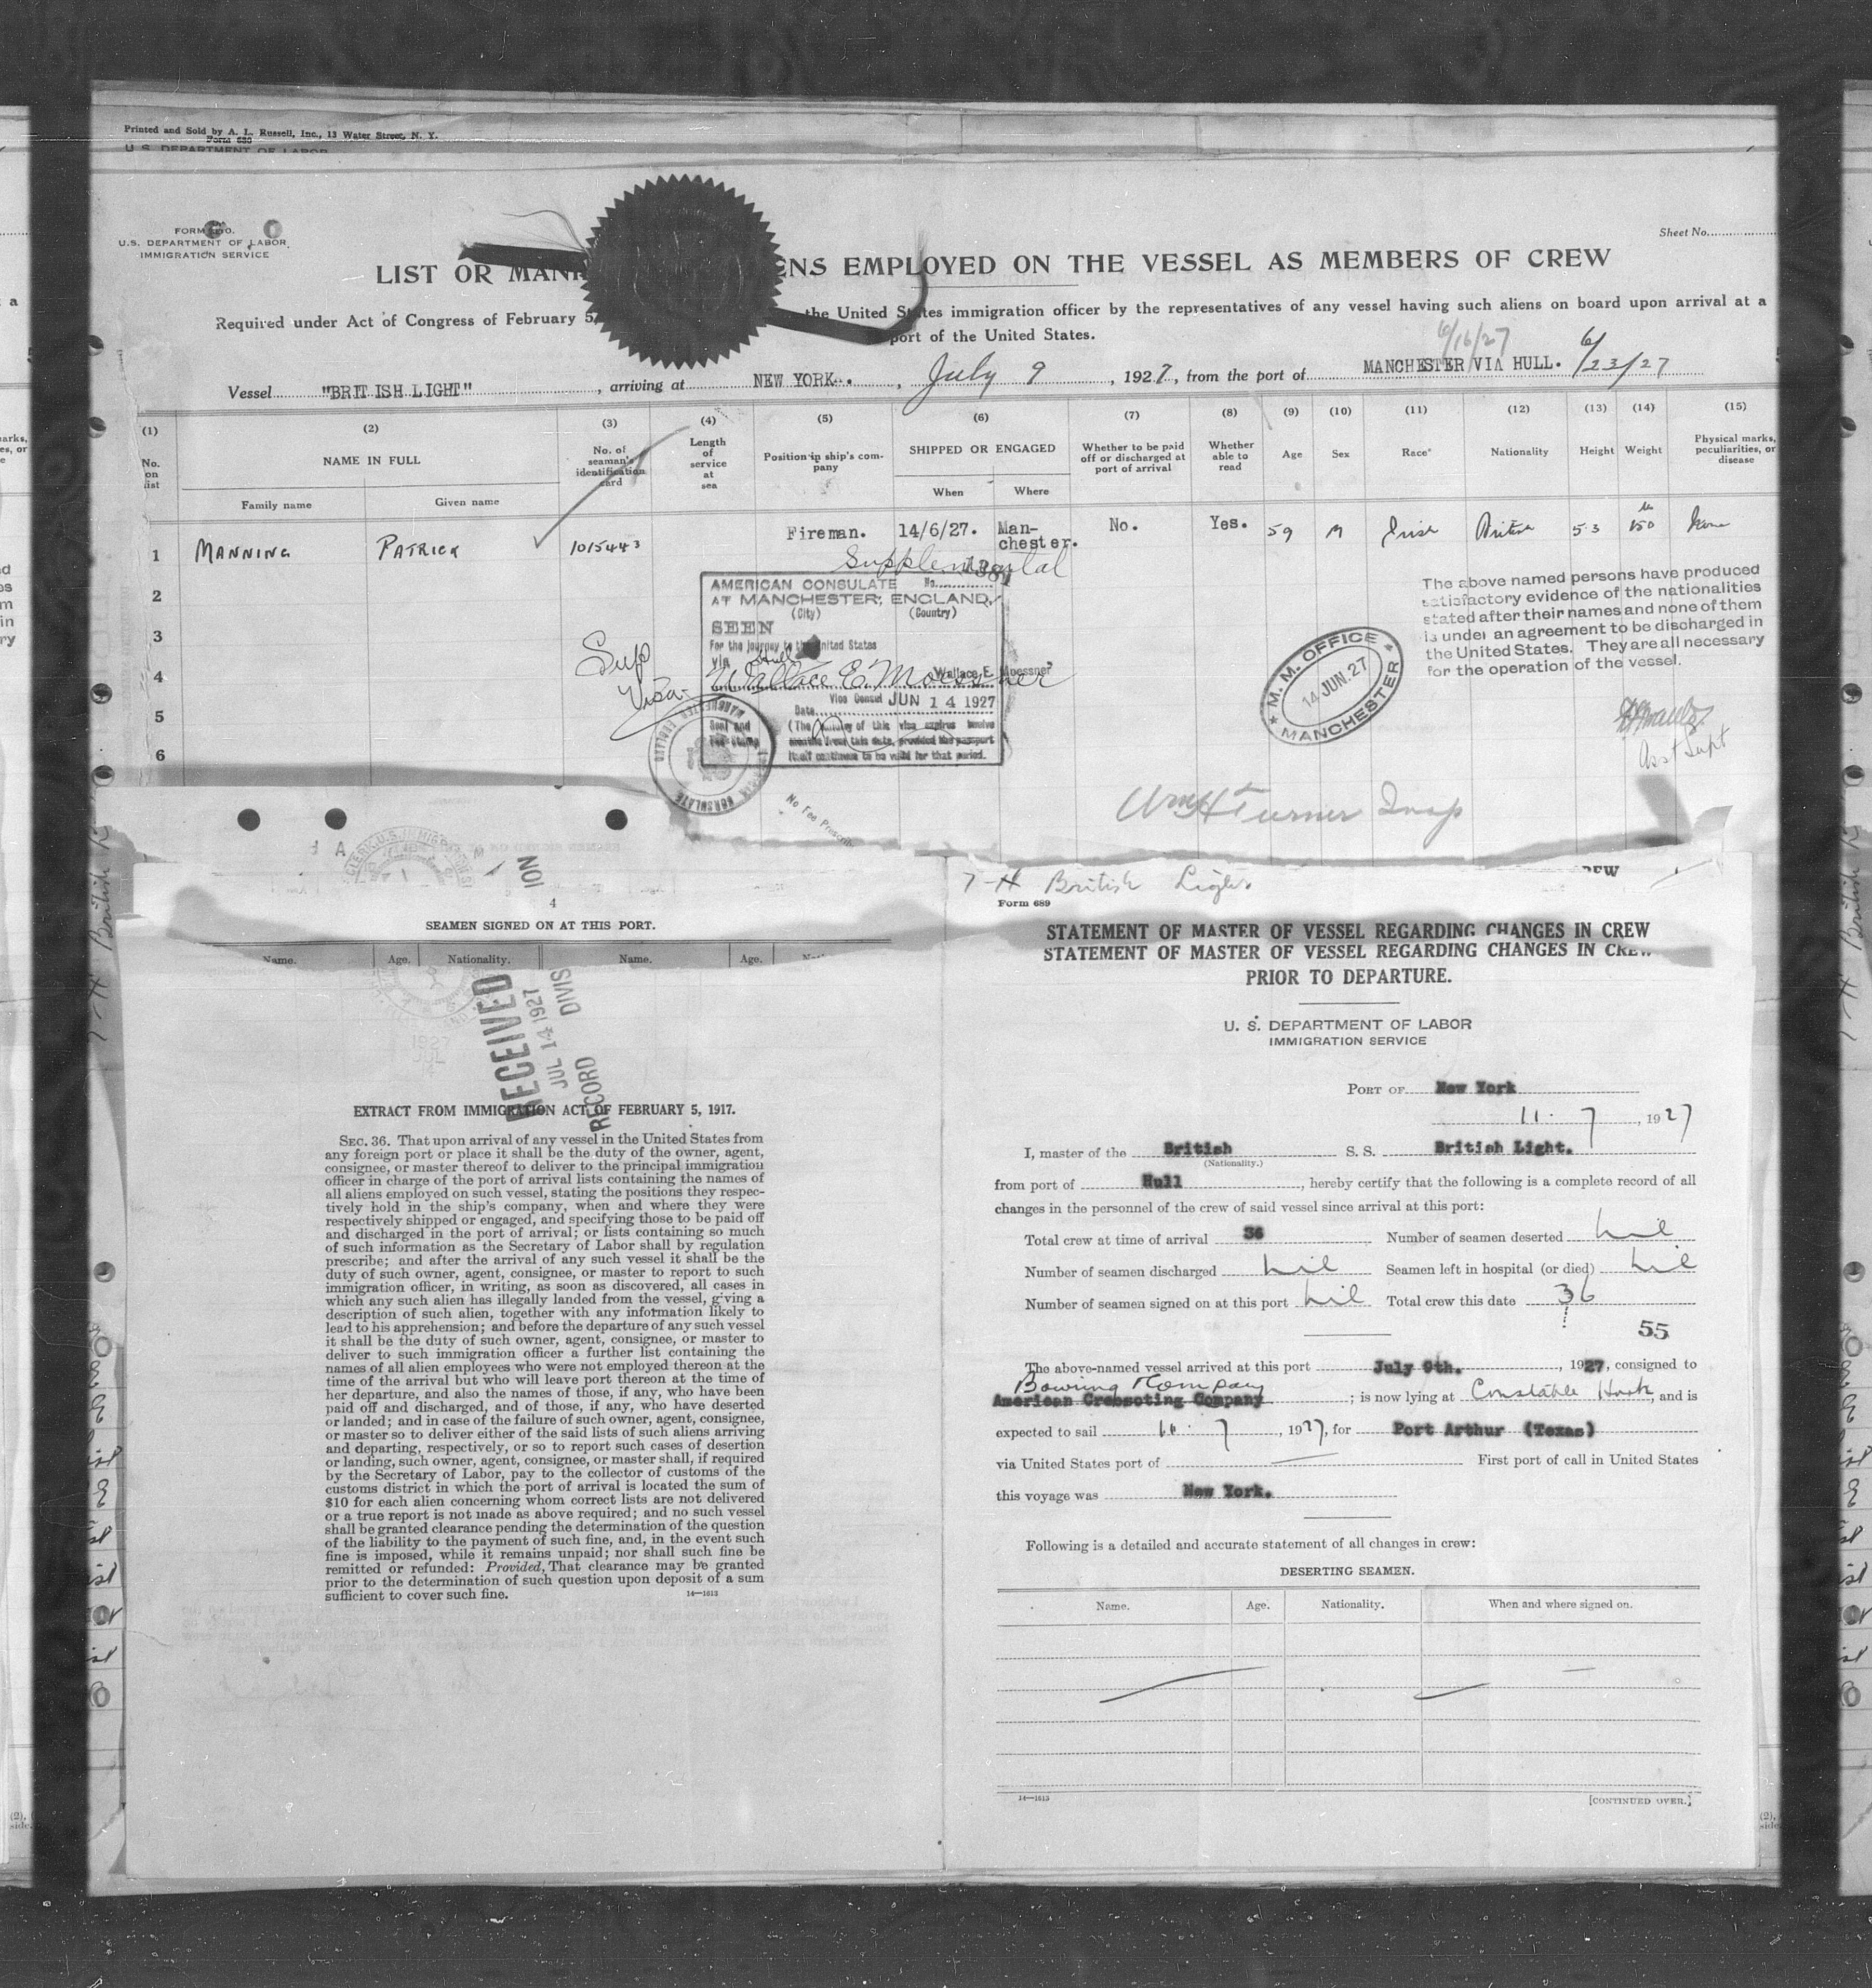 Printed and Sold by A. L. Russell, Inc., 13 Water Street, N. Y.
Form 680
U. S. DEPARTMENT OF LABOR
U.S. DEPARTMENT OF LABOR
IMMIGRATION SERVICE
Sheet No.
LIST OR ENS EMPLOYED ON THE VESSEL AS MEMBERS OF CREW
Required under Act of Congress of February 5, the United States immigration officer by the representatives of any vessel having such aliens on board upon arrival at a
port of the United States.
6/16/27
Vessel "BRITISH LIGHT" , arriving at NEW YORK. , July 9 , 1927, from the port of MANCHESTER VIA HULL. 6/23/27
(1) (2) (3) (4) (5) (6) (7) (8) (9) (10) (11) (12) (13) (14) (15)
No. on list
NAME IN FULL
Family name
Given name
No. of seaman's identification card
Length of service at sea
Position in ship's company
SHIPPED OR ENGAGED
When
Where
Whether to be paid off or discharged at port of arrival
Whether able to read
Age
Sex
Race*
Nationality
Height
Weight
Physical marks, peculiarities, or disease
1 MANNING PATRICK 1015443 Fireman. 14/6/27. Man-chester. No. Yes. 59 M Irish British 5 3 150 None
2
3
4
5
6
Supplemental
AMERICAN CONSULATE No. 1381
AT MANCHESTER, ENGLAND,
(City) (Country)
SEEN
For the journey to the United States
via Hull
Wallace E. Moessner
Wallace E. Moessner
Vice Consul
Date JUN 14 1927
Seal and Fee Stamp
(The validity of this visa expires twelve
months from this date, provided the passport
itself continues to be valid for that period.
Sup
Visa
No Fee Prescrib
M. M. OFFICE
14 JUN. 27
MANCHESTER
The above named persons have produced
satisfactory evidence of the nationalities
stated after their names and none of them
is under an agreement to be discharged in
the United States. They are all necessary
for the operation of the vessel.
Asst Supt
Wm H Turner Insp
4
SEAMEN SIGNED ON AT THIS PORT.
Name. Age. Nationality. Name. Age.
RECEIVED
JUL 14 1927
RECORD DIVISION
EXTRACT FROM IMMIGRATION ACT OF FEBRUARY 5, 1917.
SEC. 36. That upon arrival of any vessel in the United States from
any foreign port or place it shall be the duty of the owner, agent,
consignee, or master thereof to deliver to the principal immigration
officer in charge of the port of arrival lists containing the names of
all aliens employed on such vessel, stating the positions they respec-
tively hold in the ship's company, when and where they were
respectively shipped or engaged, and specifying those to be paid off
and discharged in the port of arrival; or lists containing so much
of such information as the Secretary of Labor shall by regulation
prescribe; and after the arrival of any such vessel it shall be the
duty of such owner, agent, consignee, or master to report to such
immigration officer, in writing, as soon as discovered, all cases in
which any such alien has illegally landed from the vessel, giving a
description of such alien, together with any information likely to
lead to his apprehension; and before the departure of any such vessel
it shall be the duty of such owner, agent, consignee, or master to
deliver to such immigration officer a further list containing the
names of all alien employees who were not employed thereon at the
time of the arrival but who will leave port thereon at the time of
her departure, and also the names of those, if any, who have been
paid off and discharged, and of those, if any, who have deserted
or landed; and in case of the failure of such owner, agent, consignee,
or master so to deliver either of the said lists of such aliens arriving
and departing, respectively, or so to report such cases of desertion
or landing, such owner, agent, consignee, or master shall, if required
by the Secretary of Labor, pay to the collector of customs of the
customs district in which the port of arrival is located the sum of
$10 for each alien concerning whom correct lists are not delivered
or a true report is not made as above required; and no such vessel
shall be granted clearance pending the determination of the question
of the liability to the payment of such fine, and, in the event such
fine is imposed, while it remains unpaid; nor shall such fine be
remitted or refunded: Provided, That clearance may be granted
prior to the determination of such question upon deposit of a sum
sufficient to cover such fine. 14—1613
7-H British Light
Form 689
STATEMENT OF MASTER OF VESSEL REGARDING CHANGES IN CREW
STATEMENT OF MASTER OF VESSEL REGARDING CHANGES IN CREW
PRIOR TO DEPARTURE.
U. S. DEPARTMENT OF LABOR
IMMIGRATION SERVICE
PORT OF New York
11. 7 , 1927
I, master of the British S. S. British Light.
(Nationality.)
from port of Hull , hereby certify that the following is a complete record of all
changes in the personnel of the crew of said vessel since arrival at this port:
Total crew at time of arrival 36 Number of seamen deserted nil
Number of seamen discharged nil Seamen left in hospital (or died) nil
Number of seamen signed on at this port nil Total crew this date 36
55
The above-named vessel arrived at this port July 9th. , 1927, consigned to
Bowring & Company
American Creosoting Company ; is now lying at Constable Hook, and is
expected to sail 11. 7 , 1927, for Port Arthur (Texas)
via United States port of First port of call in United States
this voyage was New York.
Following is a detailed and accurate statement of all changes in crew:
DESERTING SEAMEN.
Name. Age. Nationality. When and where signed on.
14—1613 [CONTINUED OVER.]